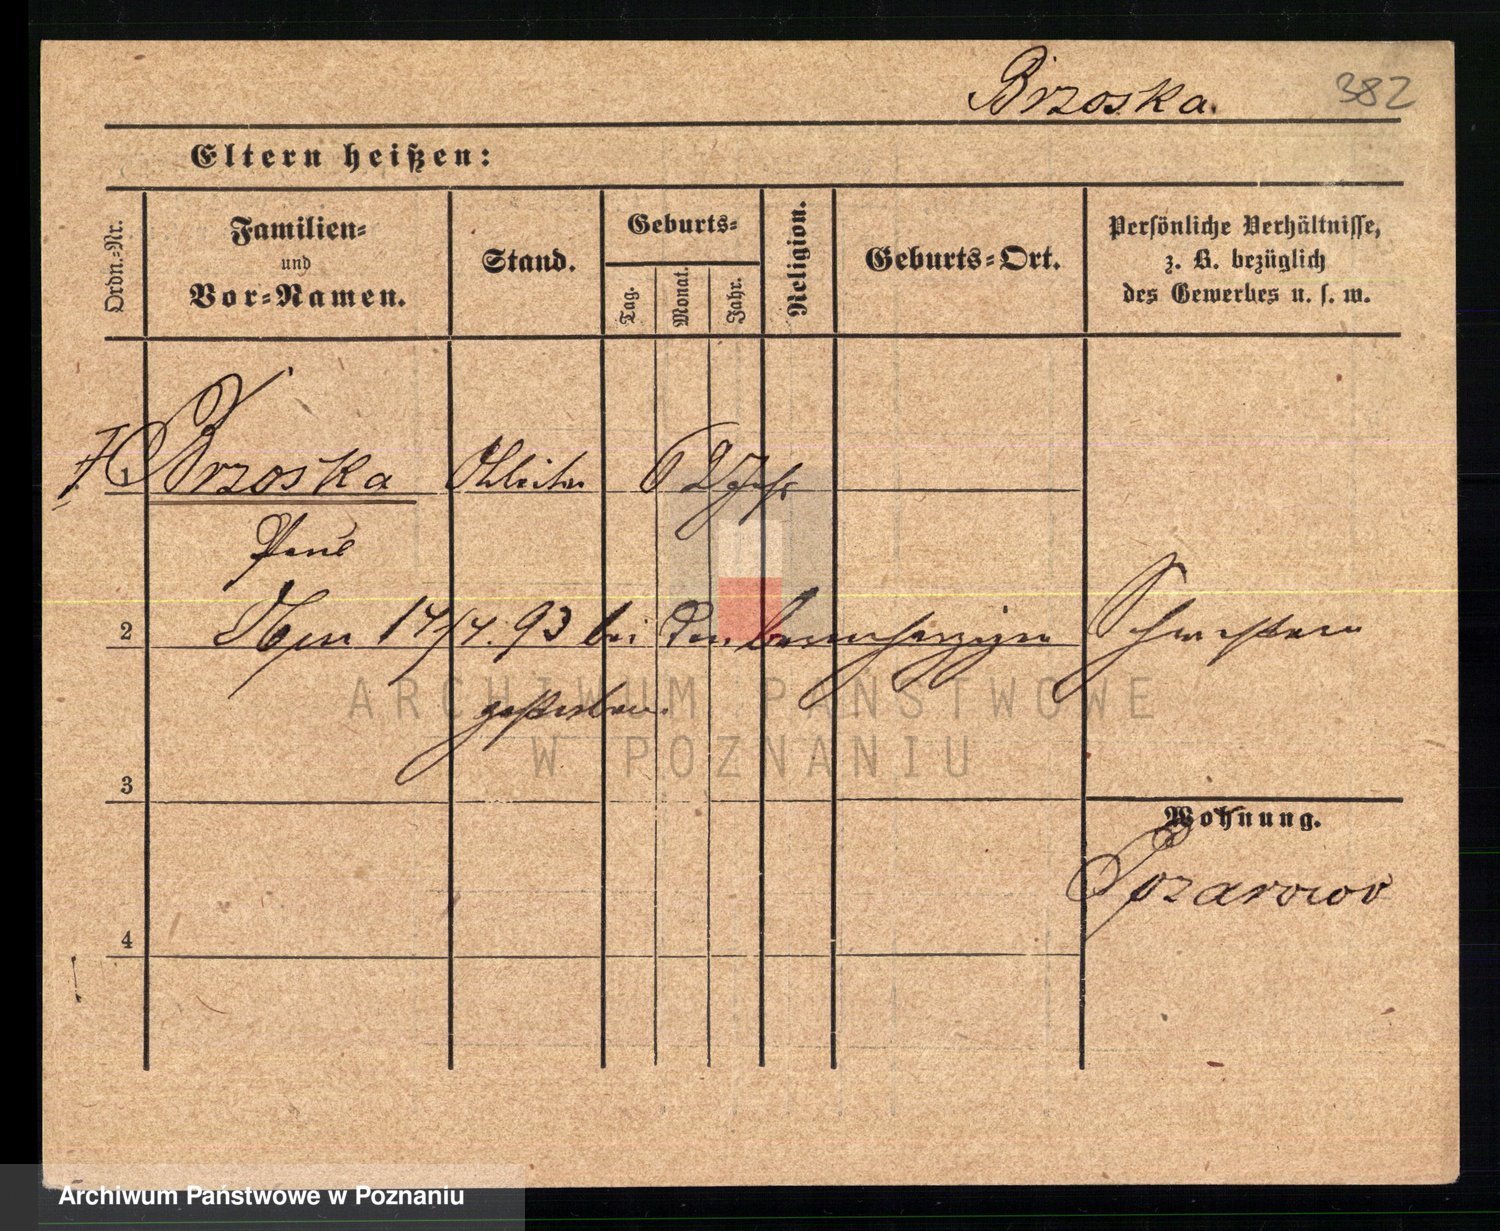 Brzoska. 382
Eltern heißen:
Ordn.-Nr.
Familien-
und
Vor-Namen.
Stand.
Geburts-
Tag.
Monat.
Jahr.
Religion.
Geburts-Ort.
Persönliche Verhältnisse,
z. B. bezüglich
des Gewerbes u. s. w.
Brzoska Arbeiter 62 Jahr
Paul
2 Am 17/4. 93 bei den barmherzigen Schwestern
gestorben.
3
Wohnung.
Pozarowo
4
ARCHIWUM PAŃSTWOWE
W POZNANIU
Archiwum Państwowe w Poznaniu